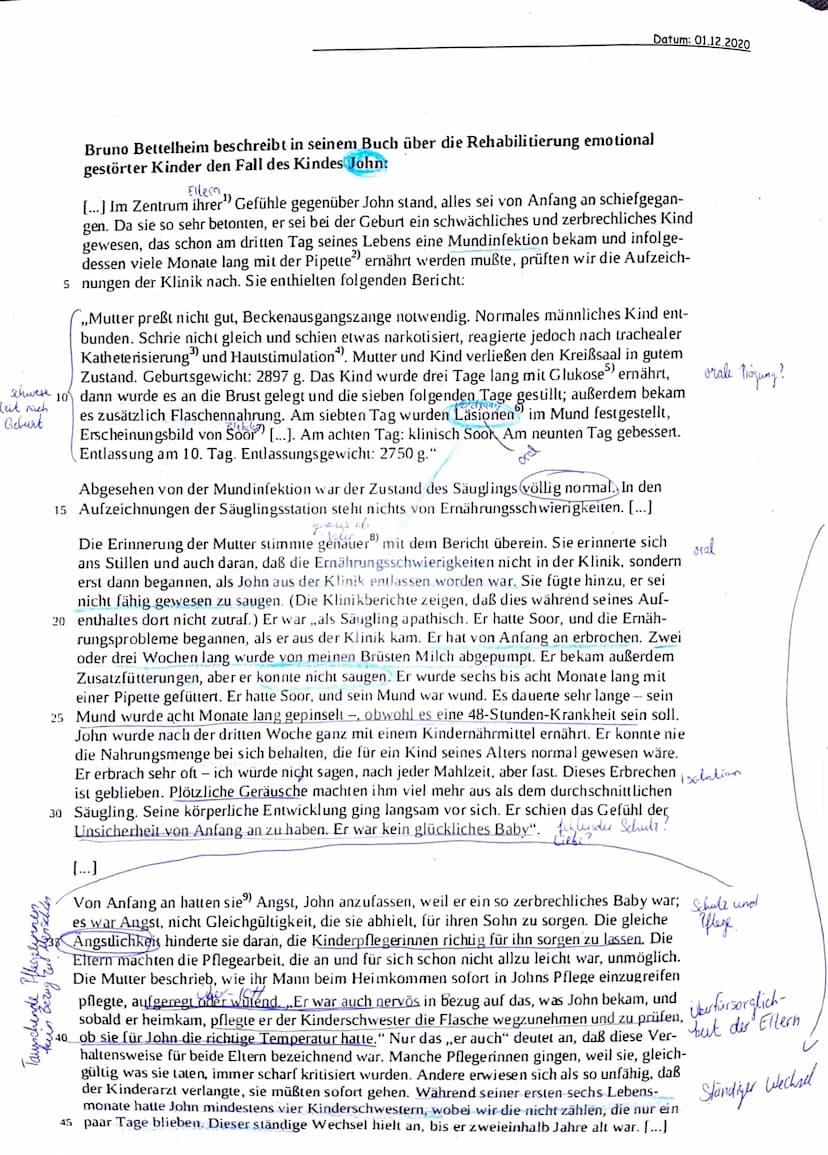 Datum: 01.12.2020
Bruno Bettelheim beschreibt in seinem Buch über die Rehabilitierung emotional
gestörter Kinder den Fall des Kindes John:
Eltern
[...] Im Zentrum ihrer¹⁾ Gefühle gegenüber John stand, alles sei von Anfang an schiefgegan-
gen. Da sie so sehr betonten, er sei bei der Geburt ein schwächliches und zerbrechliches Kind
gewesen, das schon am dritten Tag seines Lebens eine Mundinfektion bekam und infolge-
dessen viele Monate lang mit der Pipette²⁾ ernährt werden mußte, prüften wir die Aufzeich-
5 nungen der Klinik nach. Sie enthielten folgenden Bericht:
„Mutter preßt nicht gut, Beckenausgangszange notwendig. Normales männliches Kind ent-
bunden. Schrie nicht gleich und schien etwas narkotisiert, reagierte jedoch nach trachealer
Katheterisierung³⁾ und Hautstimulation⁴⁾. Mutter und Kind verließen den Kreißsaal in gutem
Zustand. Geburtsgewicht: 2897 g. Das Kind wurde drei Tage lang mit Glukose⁵⁾ ernährt,
orale Prägung?
10 dann wurde es an die Brust gelegt und die sieben folgenden Tage gestillt; außerdem bekam
nach
Geburt
es zusätzlich Flaschennahrung. Am siebten Tag wurden Läsionen⁶⁾ im Mund festgestellt,
Erscheinungsbild von Soor⁷⁾ [...]. Am achten Tag: klinisch Soor. Am neunten Tag gebessert.
Entlassung am 10. Tag. Entlassungsgewicht: 2750 g.“
oral
Abgesehen von der Mundinfektion war der Zustand des Säuglings völlig normal. In den
15 Aufzeichnungen der Säuglingsstation steht nichts von Ernährungsschwierigkeiten. [...]
Die Erinnerung der Mutter stimmte genauer⁸⁾ mit dem Bericht überein. Sie erinnerte sich
oral
ans Stillen und auch daran, daß die Ernährungsschwierigkeiten nicht in der Klinik, sondern
erst dann begannen, als John aus der Klinik entlassen worden war. Sie fügte hinzu, er sei
nicht fähig gewesen zu saugen. (Die Klinikberichte zeigen, daß dies während seines Auf-
20 enthaltes dort nicht zutraf.) Er war „als Säugling apathisch. Er hatte Soor, und die Ernäh-
rungsprobleme begannen, als er aus der Klinik kam. Er hat von Anfang an erbrochen. Zwei
oder drei Wochen lang wurde von meinen Brüsten Milch abgepumpt. Er bekam außerdem
Zusatzfütterungen, aber er konnte nicht saugen. Er wurde sechs bis acht Monate lang mit
einer Pipette gefüttert. Er hatte Soor, und sein Mund war wund. Es dauerte sehr lange – sein
25 Mund wurde acht Monate lang gepinselt –, obwohl es eine 48-Stunden-Krankheit sein soll.
John wurde nach der dritten Woche ganz mit einem Kindernährmittel ernährt. Er konnte nie
die Nahrungsmenge bei sich behalten, die für ein Kind seines Alters normal gewesen wäre.
Er erbrach sehr oft – ich würde nicht sagen, nach jeder Mahlzeit, aber fast. Dieses Erbrechen
Isolation
ist geblieben. Plötzliche Geräusche machten ihm viel mehr aus als dem durchschnittlichen
30 Säugling. Seine körperliche Entwicklung ging langsam vor sich. Er schien das Gefühl der
Unsicherheit von Anfang an zu haben. Er war kein glückliches Baby“.
fehlender Schutz?
Liebe?
[...]
Von Anfang an hatten sie⁹⁾ Angst, John anzufassen, weil er ein so zerbrechliches Baby war;
Schutz und
Pflege
es war Angst, nicht Gleichgültigkeit, die sie abhielt, für ihren Sohn zu sorgen. Die gleiche
35 Ängstlichkeit hinderte sie daran, die Kinderpflegerinnen richtig für ihn sorgen zu lassen. Die
Eltern machten die Pflegearbeit, die an und für sich schon nicht allzu leicht war, unmöglich.
Die Mutter beschrieb, wie ihr Mann beim Heimkommen sofort in Johns Pflege einzugreifen
pflegte, aufgeregt oder wütend. „Er war auch nervös in bezug auf das, was John bekam, und
sobald er heimkam, pflegte er der Kinderschwester die Flasche wegzunehmen und zu prüfen,
Überfürsorglich-
keit der Eltern
40 ob sie für John die richtige Temperatur hatte.“ Nur das „er auch“ deutet an, daß diese Ver-
haltensweise für beide Eltern bezeichnend war. Manche Pflegerinnen gingen, weil sie, gleich-
gültig was sie taten, immer scharf kritisiert wurden. Andere erwiesen sich als so unfähig, daß
der Kinderarzt verlangte, sie müßten sofort gehen. Während seiner ersten sechs Lebens-
Ständiger Wechsel
monate hatte John mindestens vier Kinderschwestern, wobei wir die nicht zählen, die nur ein
45 paar Tage blieben. Dieser ständige Wechsel hielt an, bis er zweieinhalb Jahre alt war. [...]